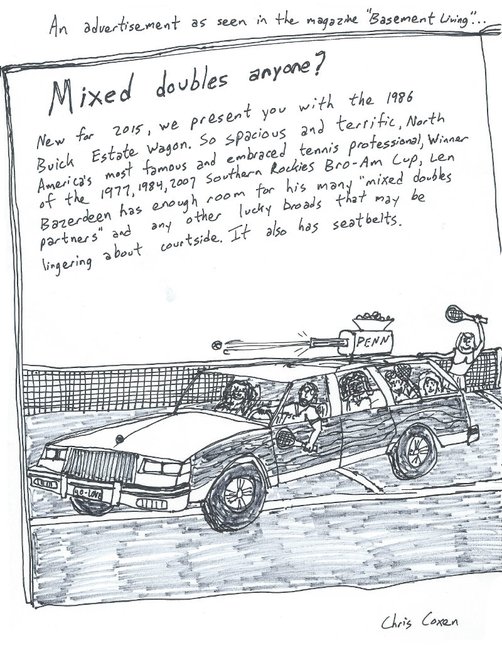 An advertisement as seen in the magazine "Basement Living"...
Mixed doubles anyone?
New for 2015, we present you with the 1986
Buick Estate Wagon. So spacious and terrific, North
America's most famous and embraced tennis professional, Winner
of the 1977, 1984, 2007 Southern Rockies Bro-Am Cup, Len
Bazerdeen has enough room for his many "mixed doubles
partners" and any other lucky broads that may be
lingering about courtside. It also has seatbelts.
PENN
40-LOVE
Chris Coxen